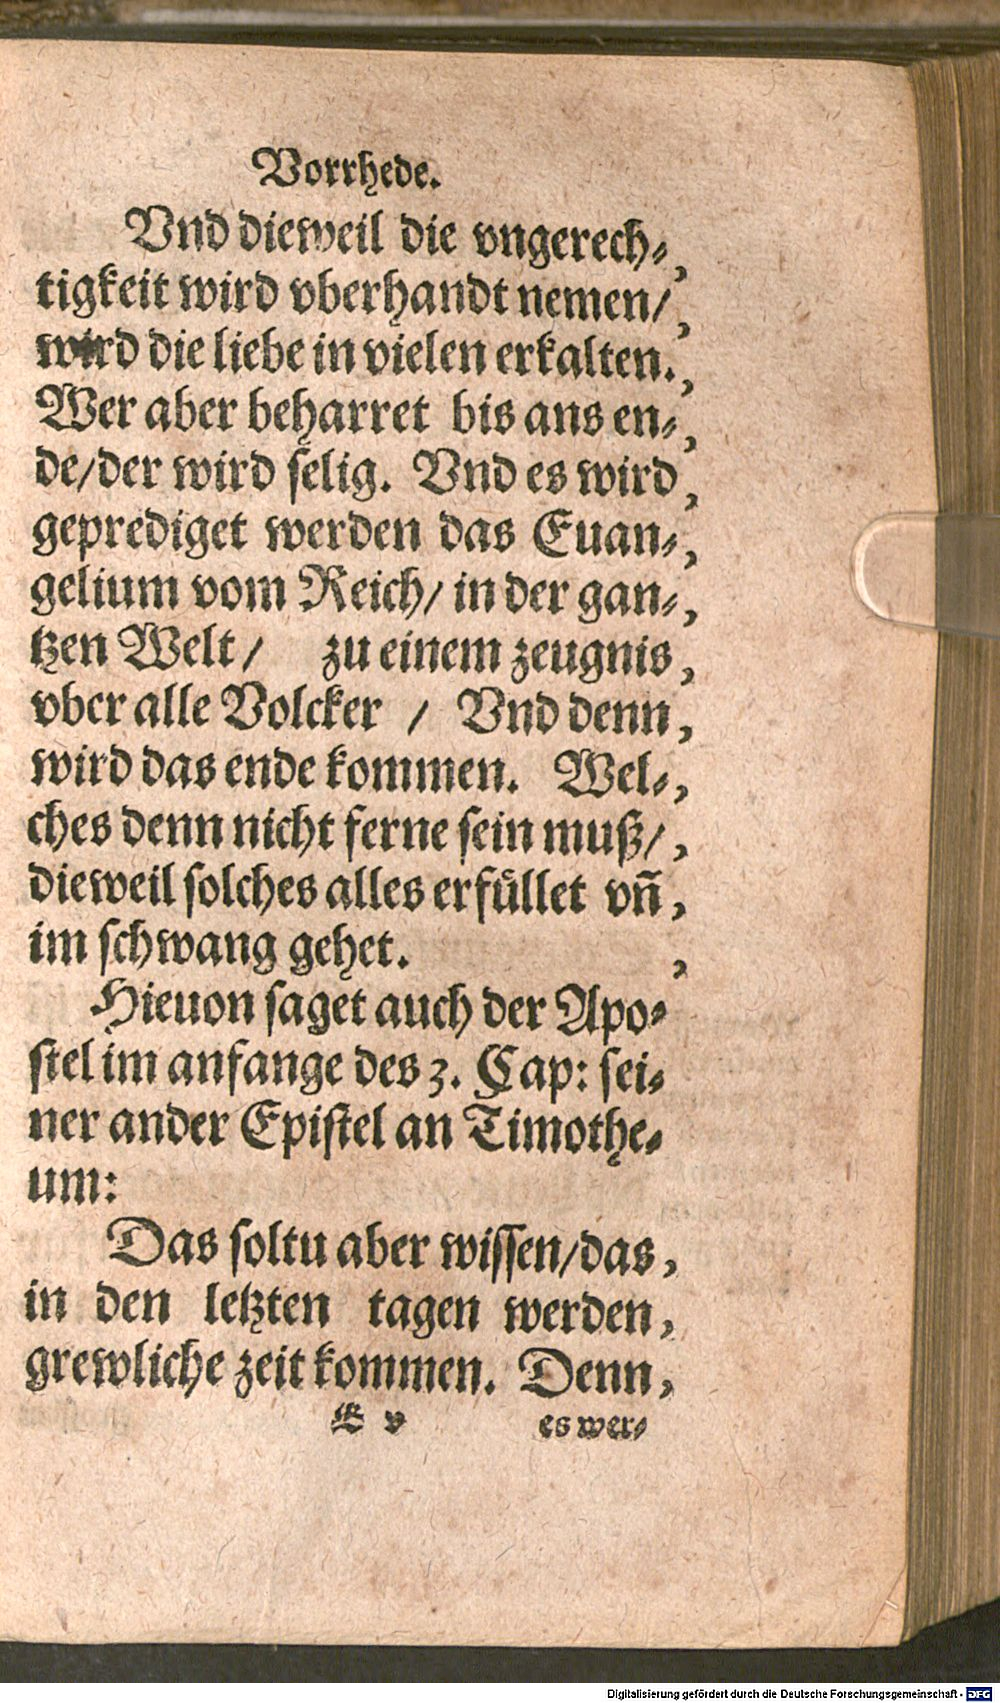 Vorrhede.
Vnd dieweil die vngerech⸗,
tigkeit wird vberhandt nemen/,
wird die liebe in vielen erkalten.,
Wer aber beharret bis ans en⸗,
de/der wird ſelig. Vnd es wird,
geprediget werden das Euan⸗,
gelium vom Reich/ in der gan⸗,
tzen Welt/ zu einem zeugnis,
vber alle Volcker / Vnd denn,
wird das ende kommen. Wel⸗,
ches denn nicht ferne ſein muß/,
dieweil ſolches alles erfuͤllet vn̄,
im ſchwang gehet. ,
Hieuon ſaget auch der Apo⸗
ſtel im anfange des 3. Cap: ſei⸗
ner ander Epiſtel an Timothe⸗
um:
Das ſoltu aber wiſſen/das,
in den letzten tagen werden,
grewliche zeit kommen. Denn,
E v es wer⸗
Digitalisierung gefördert durch die Deutsche Forschungsgemeinschaft - DFG